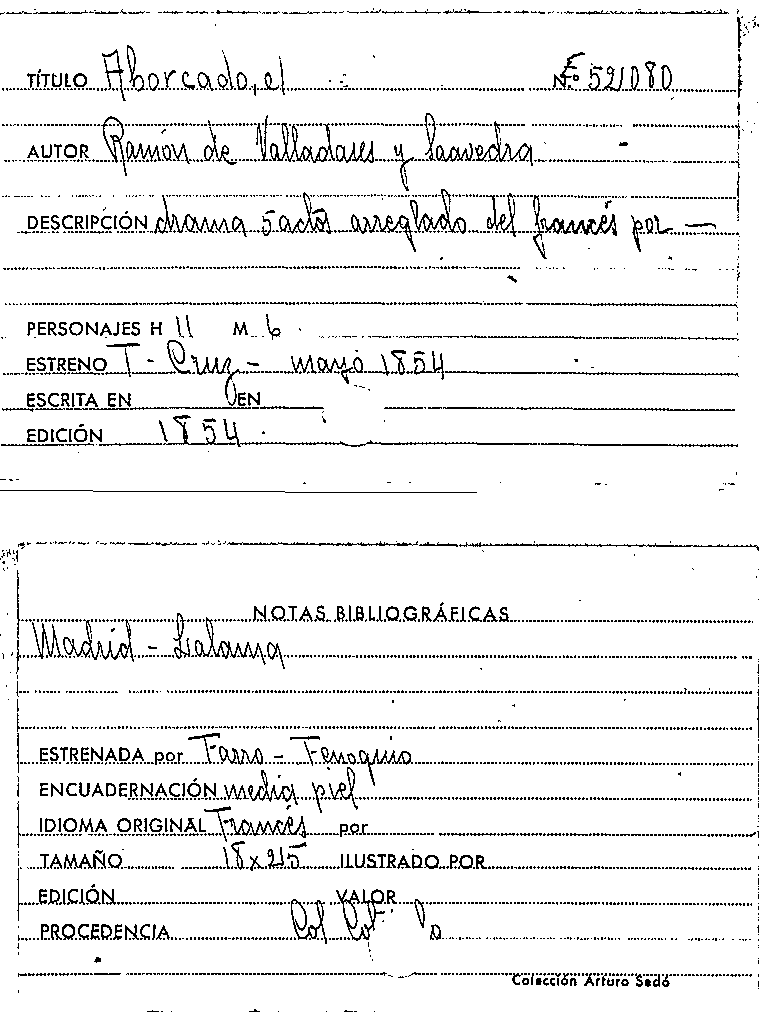 TÍTULO Ahorcado, el Nº 521080
AUTOR Ramón de Valladares y Saavedra
DESCRIPCIÓN drama 5 actos arreglado del francés por —
PERSONAJES H 11 M 6
ESTRENO T - Cruz - mayo 1854
ESCRITA EN EN
EDICIÓN 1854
NOTAS BIBLIOGRÁFICAS
Madrid - Lalama
ESTRENADA por Farro - Fenoquio
ENCUADERNACIÓN media piel
IDIOMA ORIGINAL Francés por
TAMAÑO 18 x 215 ILUSTRADO POR
EDICIÓN VALOR
PROCEDENCIA Col Cot
Colección Arturo Sedó